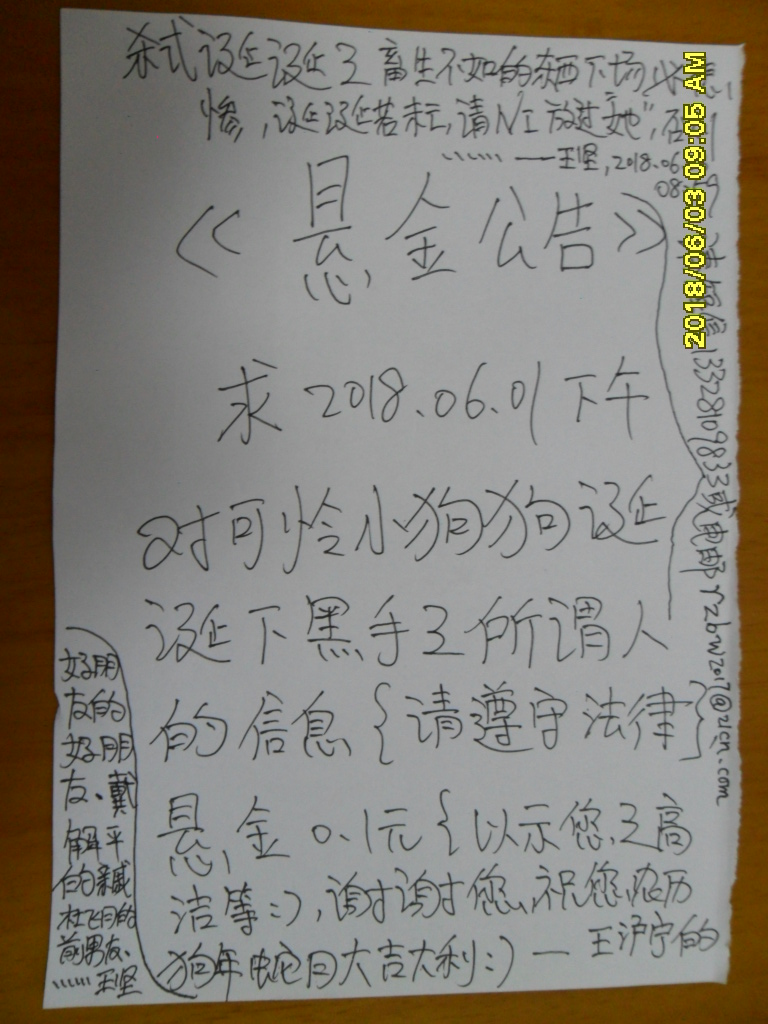 杀式诞诞之畜生不如的东西下场必悲
惨,诞诞若未亡,请NI“放过她”,否则
…… ——王坚,2018.06.
08:
《悬金公告》
求2018.06.01下午
对可怜小狗狗诞
诞下黑手之所谓人
的信息{请遵守法律}
悬金0.1元{以示您之高
洁等:),谢谢您,祝您农历
狗年蛇月大吉大利:)—王沪宁的
好朋
友的
好朋
友、戴
解平
的亲戚
杜飞月的
前男友、
……王坚
短信13328109833或电邮rzbw2017@21cn.com
2018/06/03 09:05 AM